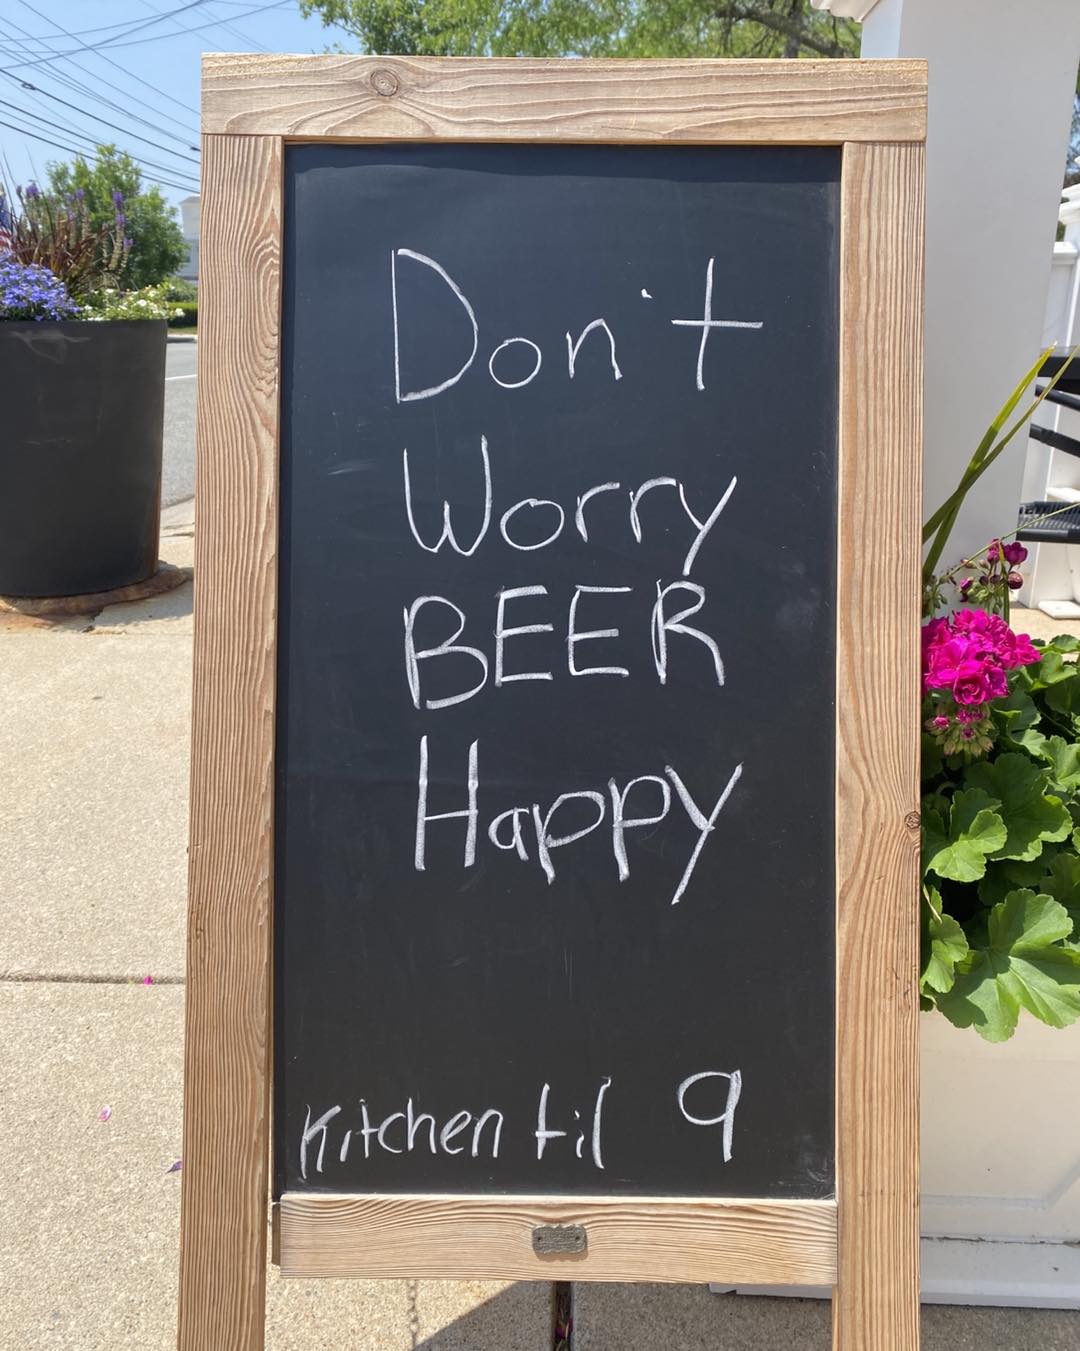 Don't
Worry
BEER
Happy
Kitchen til 9